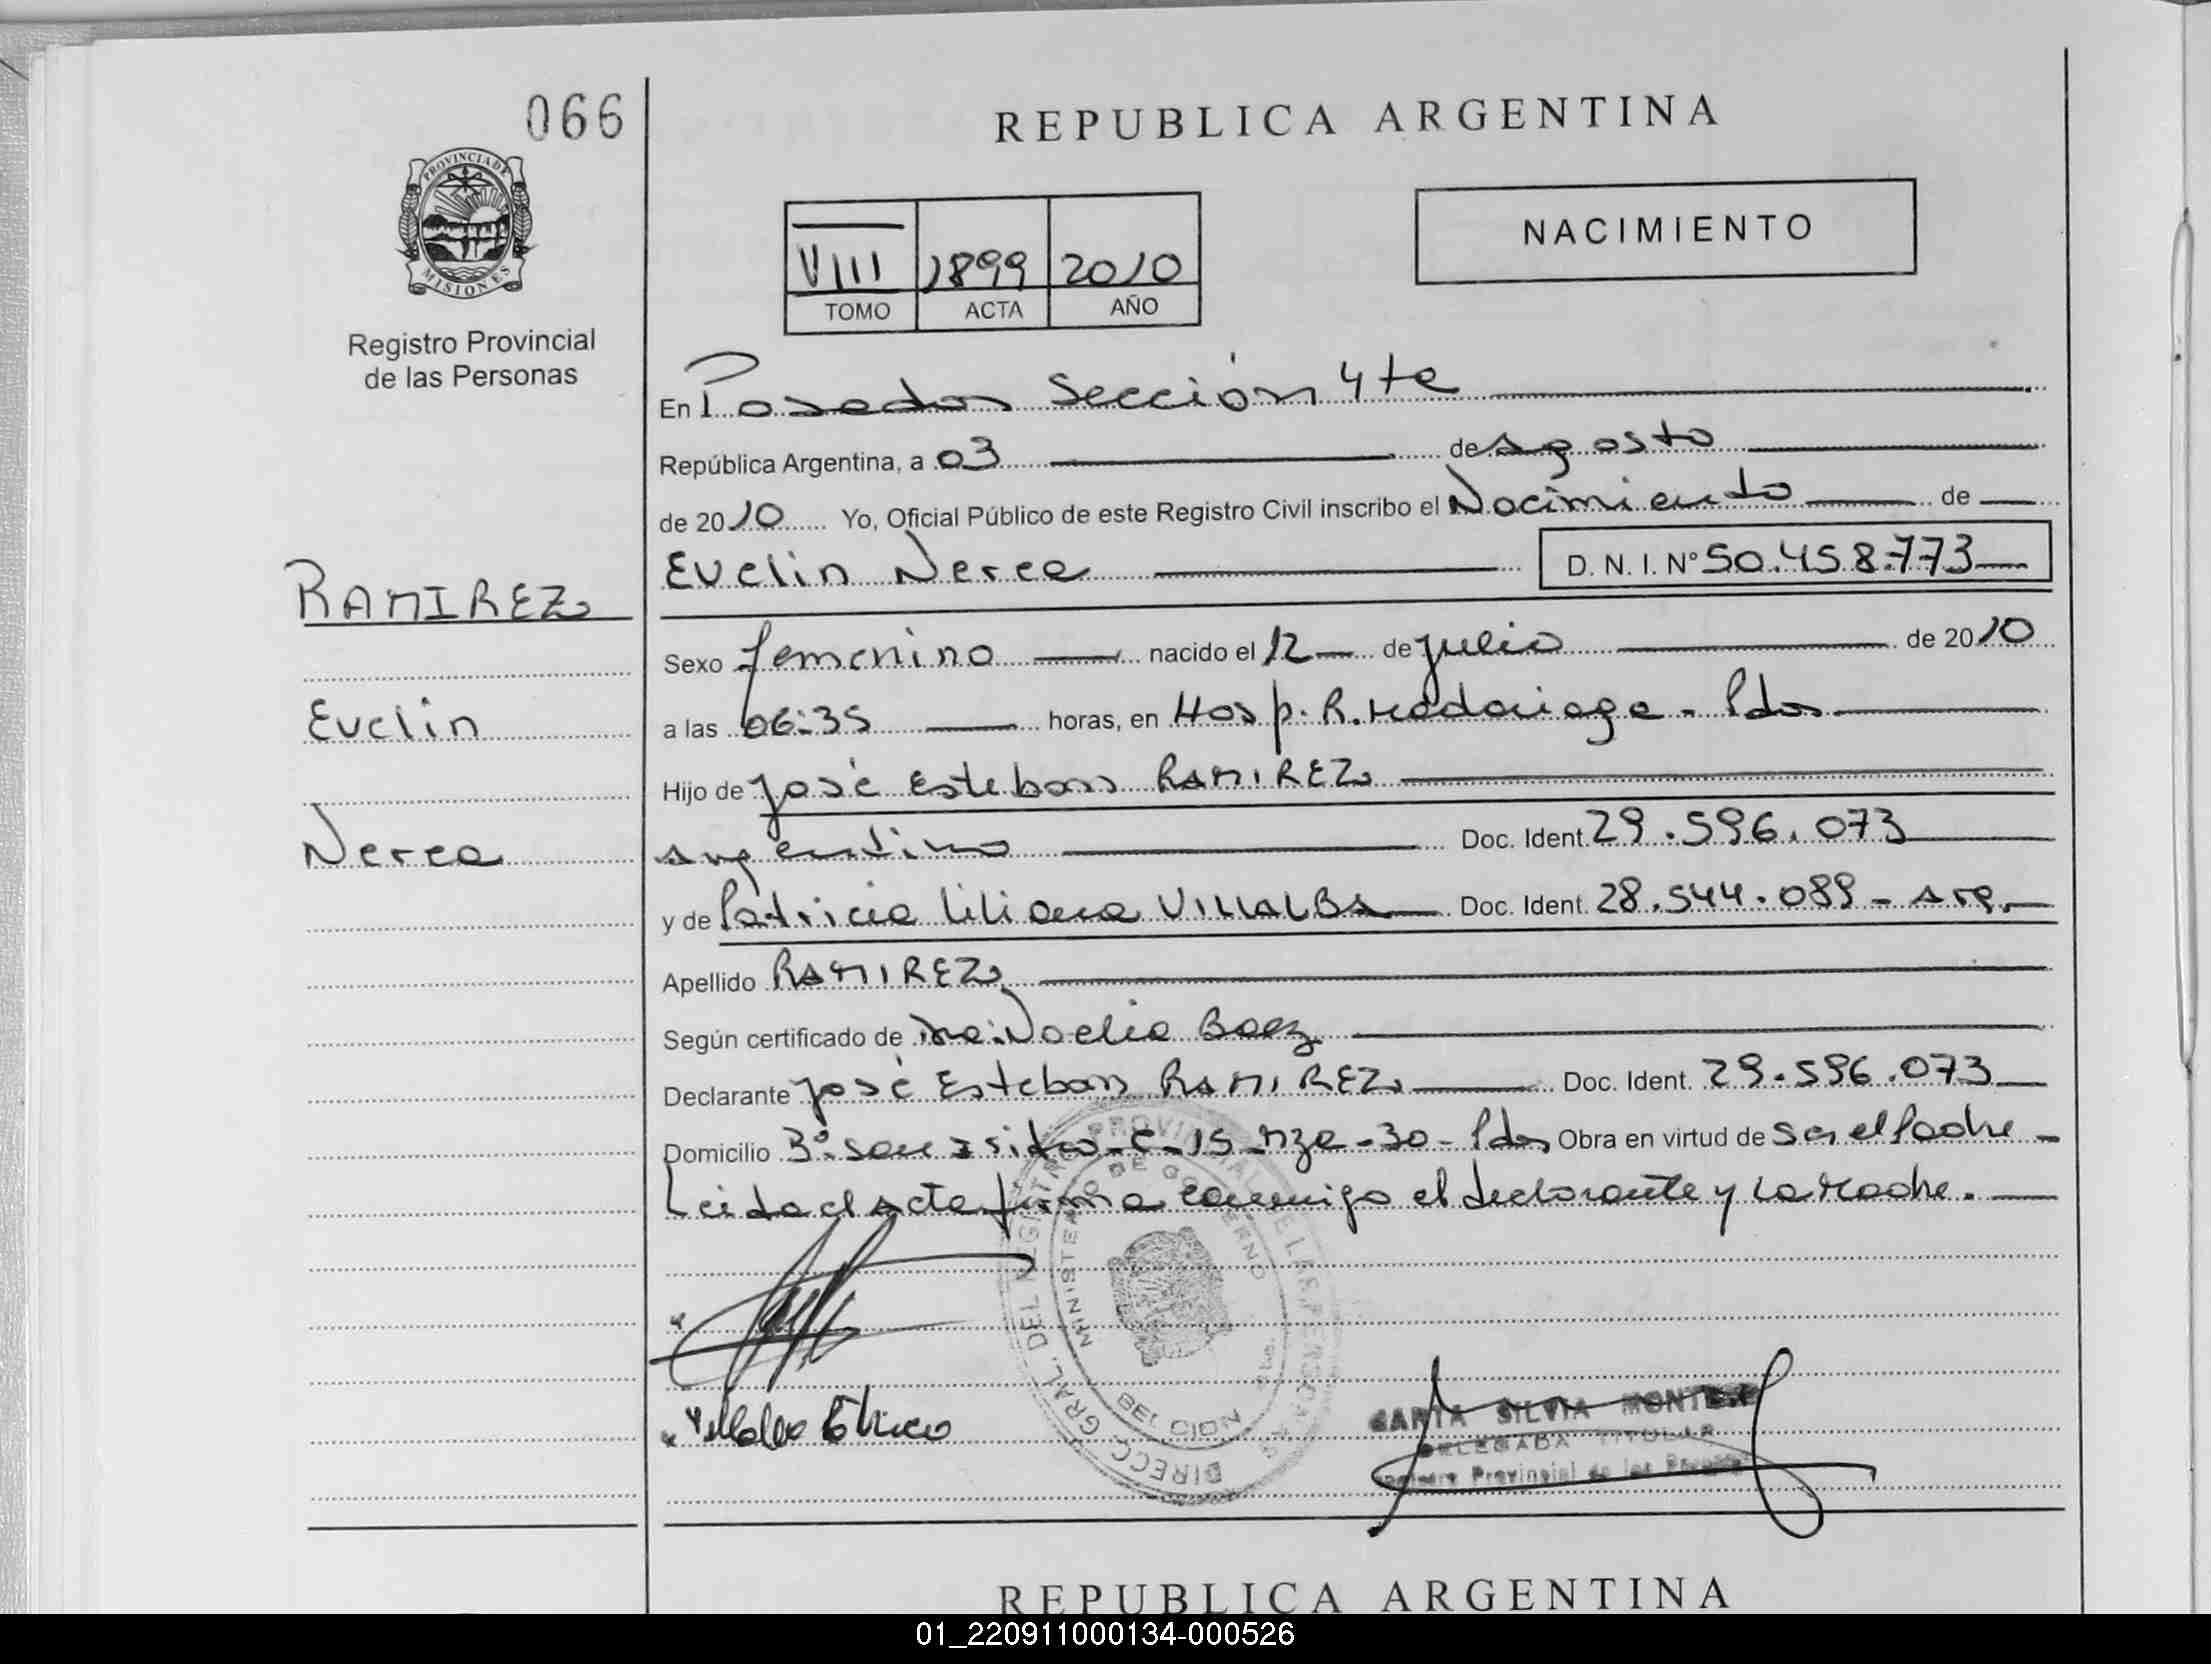 066
REPUBLICA ARGENTINA
PROVINCIA DE
MISIONES
Registro Provincial
de las Personas
NACIMIENTO
VIII 1899 2010
TOMO ACTA AÑO
En Posadas Sección 4ta
República Argentina, a 03 de Agosto
de 2010 Yo, Oficial Público de este Registro Civil inscribo el Nacimiento de
Evelin Nerea D. N. I. N° 50.458.773
RAMIREZ
Sexo femenino nacido el 12 de julio de 2010
Evelin
a las 06:35 horas, en Hosp. R. Madariaga - Pdas
Hijo de José Esteban RAMIREZ
Nerea
argentino Doc. Ident. 29.596.073
y de Patricia Liliana VILLALBA Doc. Ident. 28.544.089 - Arg.
Apellido RAMIREZ
Según certificado de Noelia Baez
Declarante José Esteban RAMIREZ Doc. Ident. 29.596.073
Domicilio San Isidro - C - 15 - Mza - 30 - Pdas Obra en virtud de Ser el Padre
Leida el Acta firma conmigo el declarante y la Madre.
DIRECC. GRAL. DEL REGISTRO PROVINCIAL DE LAS PERSONAS
MINISTERIO DE GOBIERNO
SILVIA
DELEGADA TITULAR
Registro Provincial de las Personas
REPUBLICA ARGENTINA
01_220911000134-000526